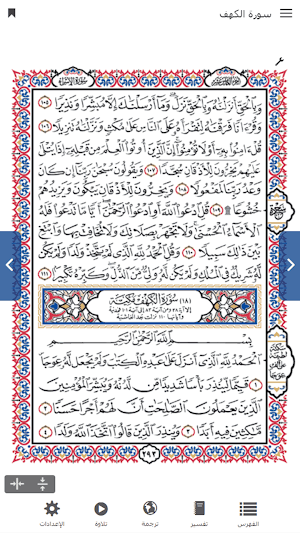 سورة الكهف
وَبِالْحَقِّ أَنزَلْنَاهُ وَبِالْحَقِّ نَزَلَ وَمَا أَرْسَلْنَاكَ إِلَّا مُبَشِّرًا وَنَذِيرًا ١٠٥
وَقُرْءَانًا فَرَقْنَاهُ لِتَقْرَأَهُ عَلَى النَّاسِ عَلَى مُكْثٍ وَنَزَّلْنَاهُ تَنزِيلًا ١٠٦
قُلْ ءَامِنُوا بِهِ أَوْ لَا تُؤْمِنُوا إِنَّ الَّذِينَ أُوتُوا الْعِلْمَ مِن قَبْلِهِ إِذَا يُتْلَى
عَلَيْهِمْ يَخِرُّونَ لِلْأَذْقَانِ سُجَّدًا ١٠٧ وَيَقُولُونَ سُبْحَانَ رَبِّنَا إِن كَانَ
وَعْدُ رَبِّنَا لَمَفْعُولًا ١٠٨ وَيَخِرُّونَ لِلْأَذْقَانِ يَبْكُونَ وَيَزِيدُهُمْ
خُشُوعًا ۩ ١٠٩ قُلِ ادْعُوا اللَّهَ أَوِ ادْعُوا الرَّحْمَٰنَ أَيًّا مَّا تَدْعُوا فَلَهُ
الْأَسْمَاءُ الْحُسْنَى وَلَا تَجْهَرْ بِصَلَاتِكَ وَلَا تُخَافِتْ بِهَا وَابْتَغِ
بَيْنَ ذَٰلِكَ سَبِيلًا ١١٠ وَقُلِ الْحَمْدُ لِلَّهِ الَّذِي لَمْ يَتَّخِذْ وَلَدًا وَلَمْ يَكُن
لَّهُ شَرِيكٌ فِي الْمُلْكِ وَلَمْ يَكُن لَّهُ وَلِيٌّ مِّنَ الذُّلِّ وَكَبِّرْهُ تَكْبِيرًا ١١١
(١٨) سُورَةُ الْكَهْفِ مَكِّيَّة
بِسْمِ اللَّهِ الرَّحْمَٰنِ الرَّحِيمِ
الْحَمْدُ لِلَّهِ الَّذِي أَنزَلَ عَلَى عَبْدِهِ الْكِتَٰبَ وَلَمْ يَجْعَل لَّهُ عِوَجًا
١ قَيِّمًا لِّيُنذِرَ بَأْسًا شَدِيدًا مِّن لَّدُنْهُ وَيُبَشِّرَ الْمُؤْمِنِينَ
الَّذِينَ يَعْمَلُونَ الصَّٰلِحَٰتِ أَنَّ لَهُمْ أَجْرًا حَسَنًا ٢
مَّٰكِثِينَ فِيهِ أَبَدًا ٣ وَيُنذِرَ الَّذِينَ قَالُوا اتَّخَذَ اللَّهُ وَلَدًا ٤
٢٩٣
الفهرس تفسير ترجمة تلاوة الإعدادات